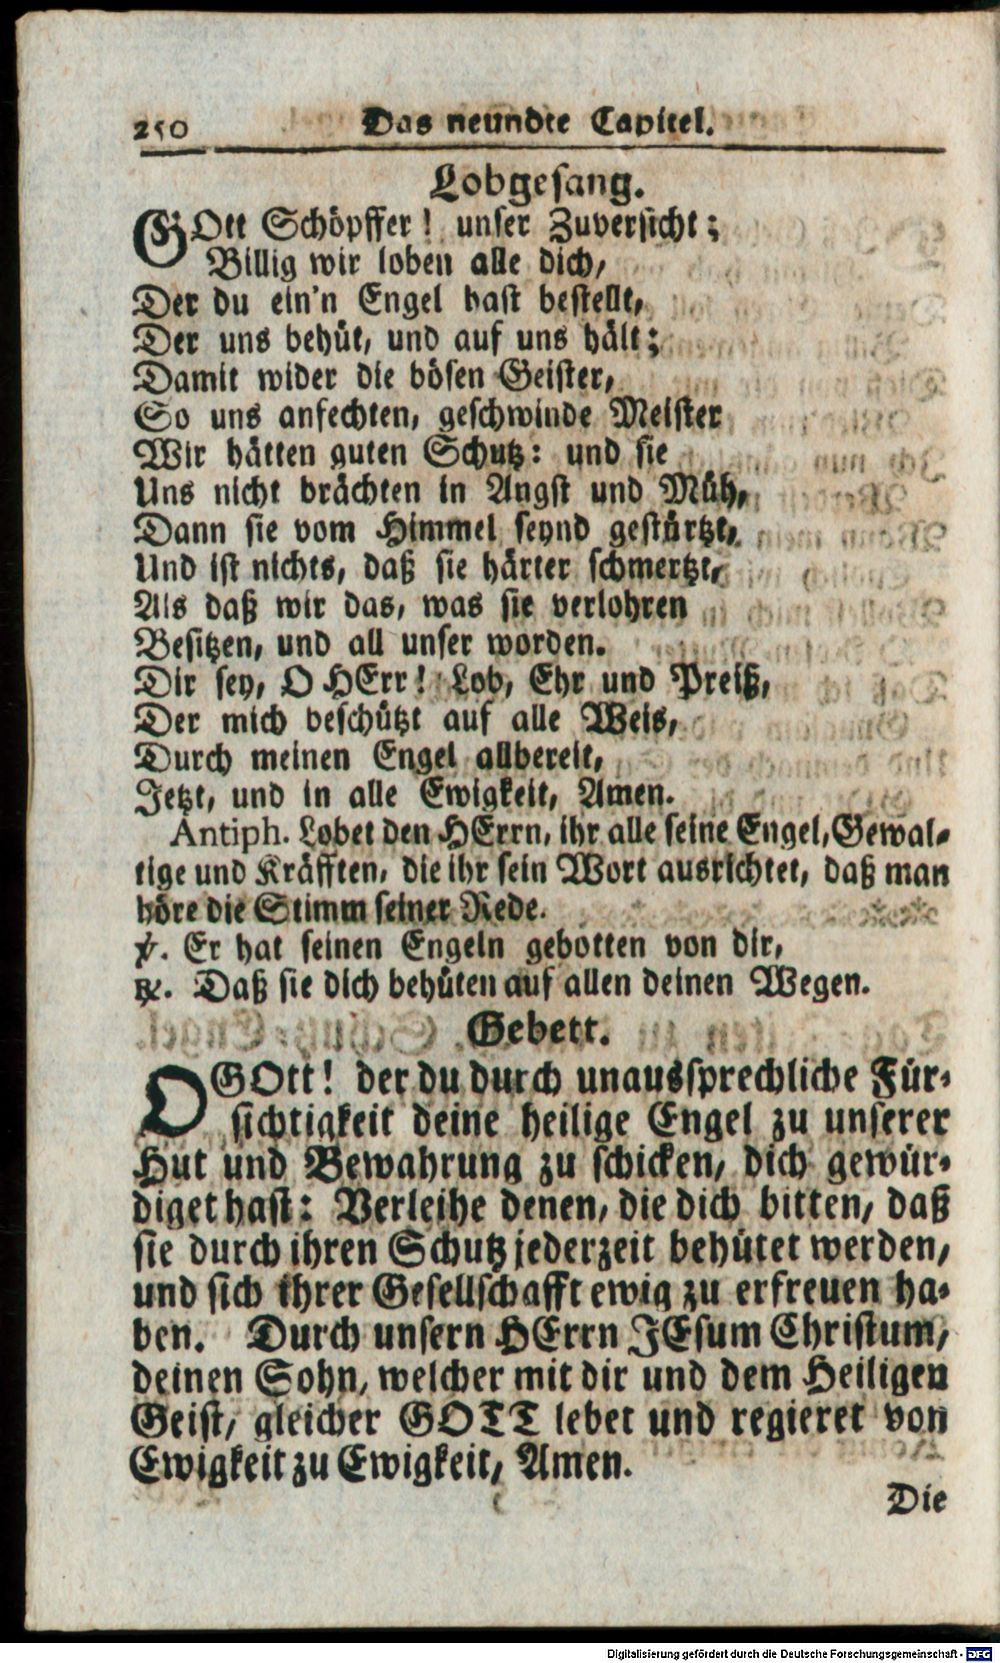 250 Das neundte Capitel.
Lobgesang.
GOtt Schöpffer! unser Zuversicht;
Billig wir loben alle dich,
Der du ein'n Engel hast bestellt,
Der uns behüt, und auf uns hält;
Damit wider die bösen Geister,
So uns anfechten, geschwinde Meister
Wir hätten guten Schutz: und sie
Uns nicht brächten in Angst und Müh,
Dann sie vom Himmel seynd gestürtzt,
Und ist nichts, daß sie härter schmertzt,
Als daß wir das, was sie verlohren
Besitzen, und all unser worden.
Dir sey, O HErr! Lob, Ehr und Preiß,
Der mich beschützt auf alle Weis,
Durch meinen Engel allbereit,
Jetzt, und in alle Ewigkeit, Amen.
Antiph. Lobet den HErrn, ihr alle seine Engel, Gewal-
tige und Kräfften, die ihr sein Wort ausrichtet, daß man
höre die Stimm seiner Rede.
℣. Er hat seinen Engeln gebotten von dir,
℟. Daß sie dich behüten auf allen deinen Wegen.
Gebett.
O GOtt! der du durch unaussprechliche Für-
sichtigkeit deine heilige Engel zu unserer
Hut und Bewahrung zu schicken, dich gewür-
diget hast: Verleihe denen, die dich bitten, daß
sie durch ihren Schutz jederzeit behütet werden,
und sich ihrer Gesellschafft ewig zu erfreuen ha-
ben. Durch unsern HErrn JEsum Christum,
deinen Sohn, welcher mit dir und dem Heiligen
Geist, gleicher GOTT lebet und regieret von
Ewigkeit zu Ewigkeit, Amen.
Die
Digitalisierung gefördert durch die Deutsche Forschungsgemeinschaft - DFG